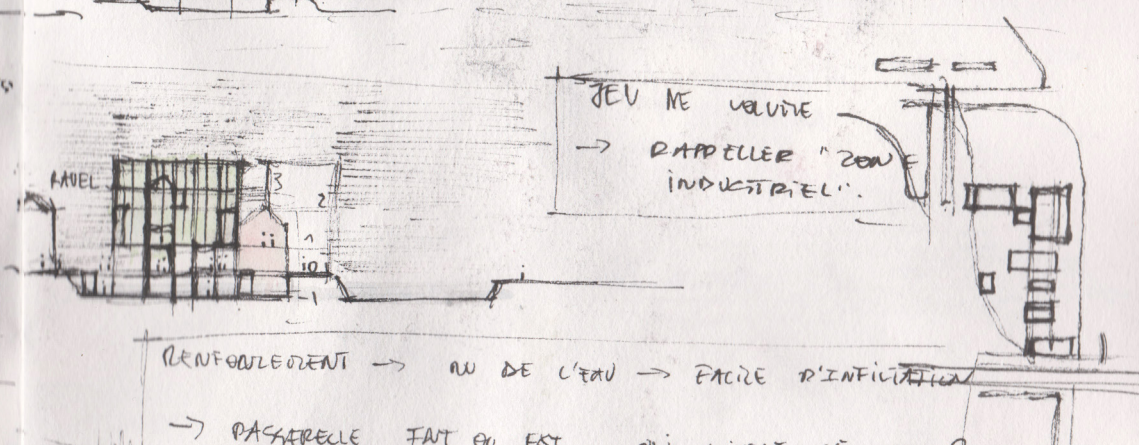 JEU DE VOLUME
→ RAPPELLER "ZONE
INDUSTRIEL".
RAVEL
3
2
1
0
-1
RENFONCEMENT → DE L'EAU → FACILE D'INFILTRATION
→ PASSERELLE EST